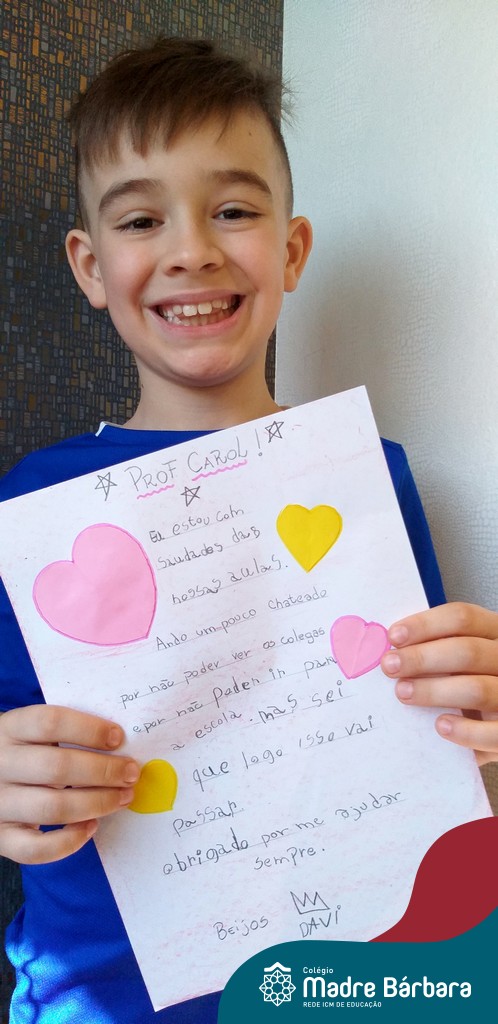 PROF CAROL!
Eu estou com
saudades das
nossas aulas.
Ando um pouco chateado
por não poder ver os colegas
e por não poder ir para
a escola. mas sei
que logo isso vai
passar
obrigado por me ajudar
sempre.
BEIJOS
DAVI
Colégio
Madre Bárbara
REDE ICM DE EDUCAÇÃO